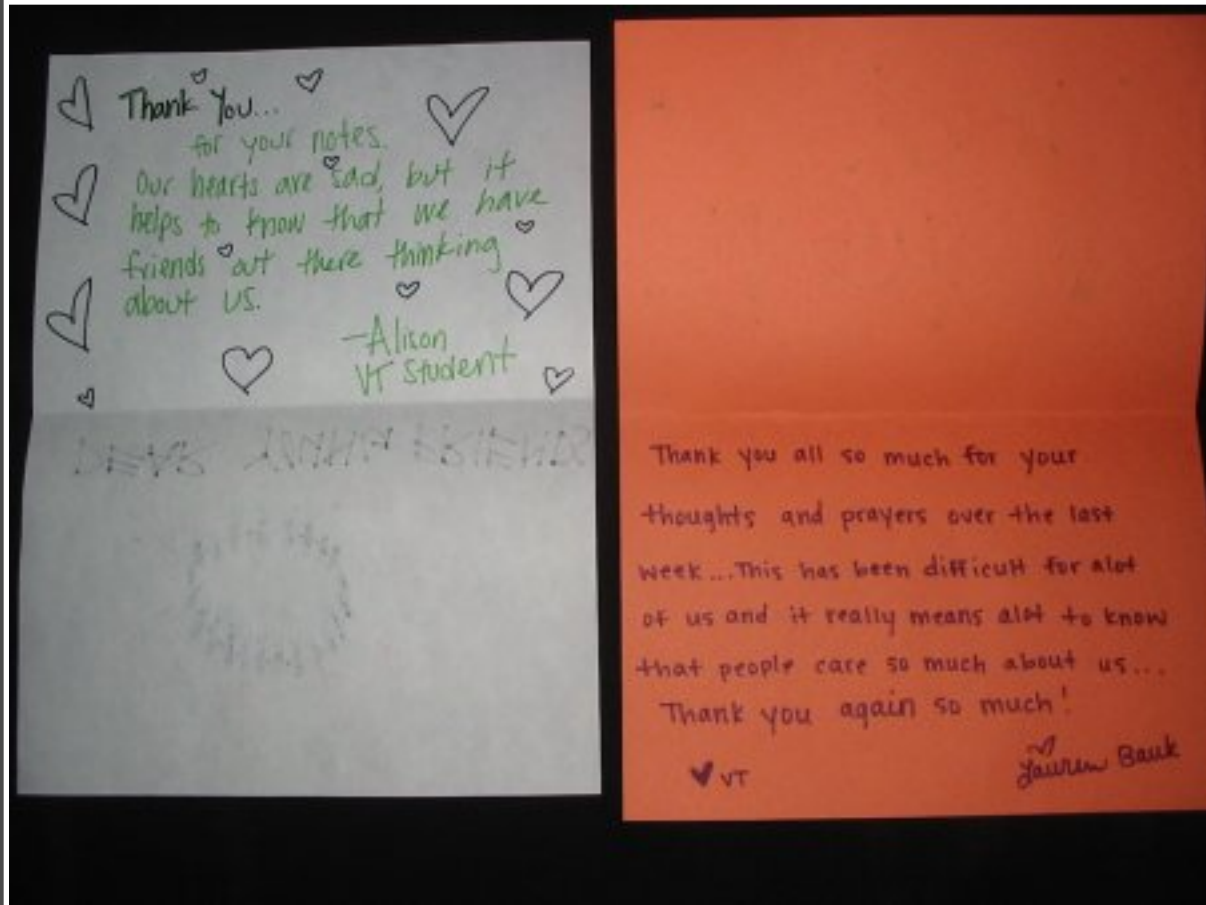 Thank You...
for your notes.
Our hearts are sad, but it
helps to know that we have
friends out there thinking
about us.
-Alison
VT Student
Thank you all so much for your
thoughts and prayers over the last
week...This has been difficult for alot
of us and it really means alot to know
that people care so much about us...
Thank you again so much!
VT
Lauren Bauk